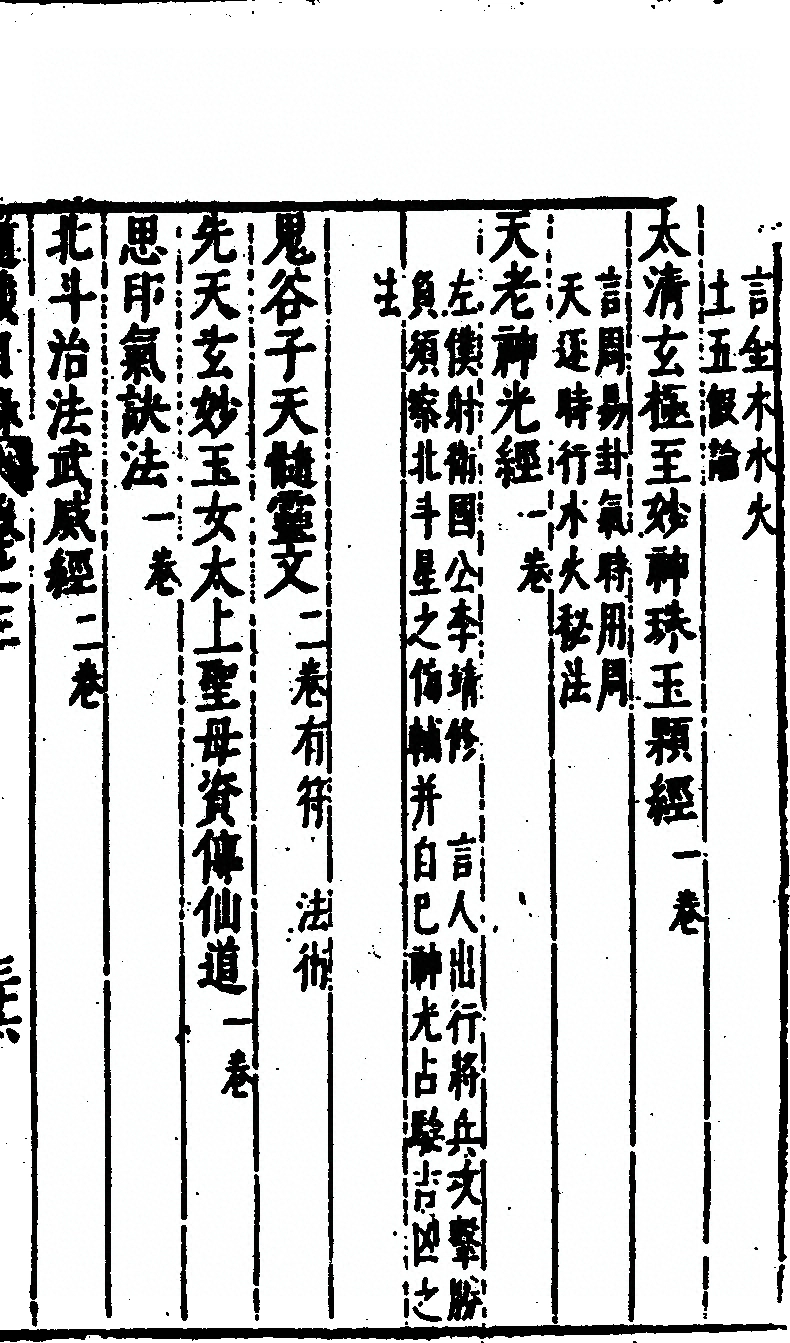 言金木水火
土五假論
太清玄極至妙神珠玉顆經一卷
言周易卦氣時用周
天逐時行水火秘法
天老神光經一卷
左僕射衛國公李靖修　言人出行將兵攻擊勝
負須察北斗星之傍輔并自己神光占驗吉凶之
生
鬼谷子天髓靈文二卷有符　法術
先天玄妙玉女太上聖母資傳仙道一卷
思印氣訣法一卷
北斗治法武威經二卷